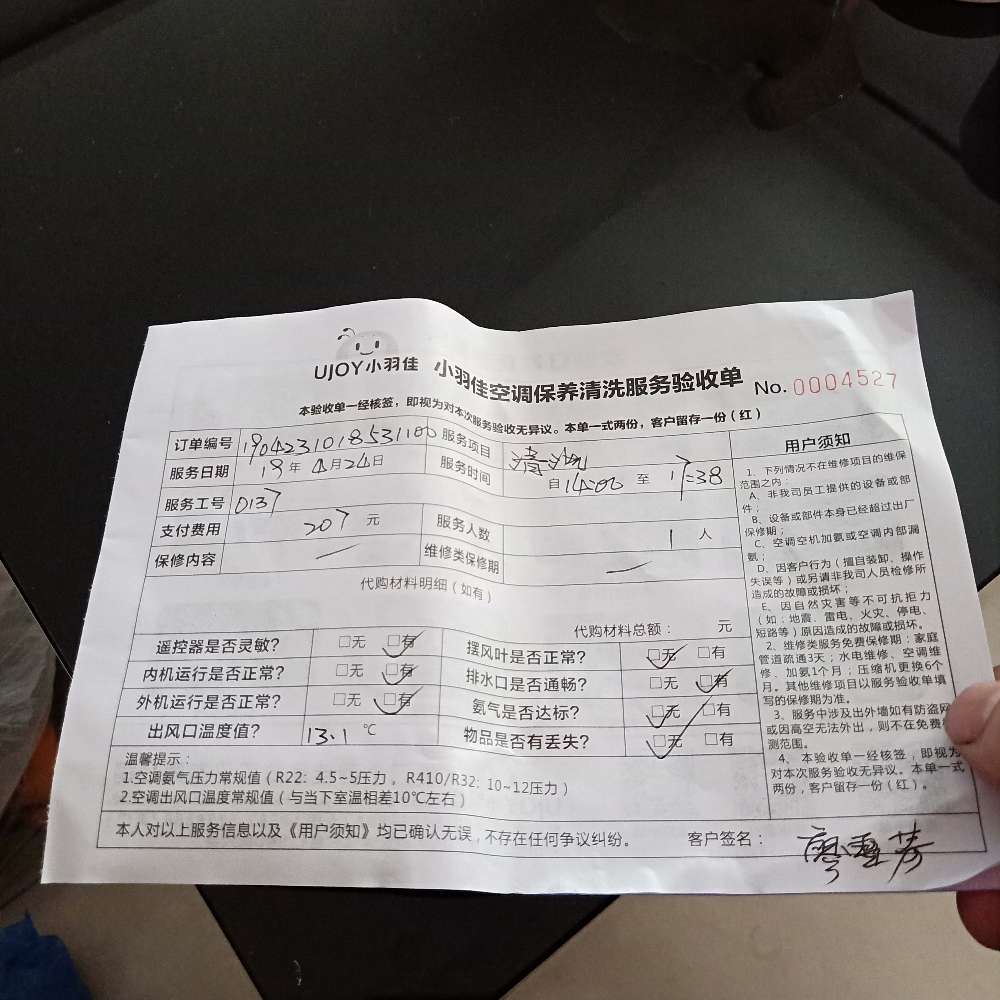 UJOY小羽佳 小羽佳空调保养清洗服务验收单 No. 0004527
本验收单一经核签，即视为对本次服务验收无异议。本单一式两份，客户留存一份（红）
订单编号 1904231018531100 服务项目 清洗
服务日期 19年4月24日 服务时间 自14:00 至 17:38
服务工号 0137
支付费用 207 元 服务人数 1 人
保修内容 — 维修类保修期 —
代购材料明细（如有）
代购材料总额： 元
遥控器是否灵敏? □无 □有 摆风叶是否正常? □无 □有
内机运行是否正常? □无 □有 排水口是否通畅? □无 □有
外机运行是否正常? □无 □有 氨气是否达标? □无 □有
出风口温度值? 13.1 ℃ 物品是否有丢失? □无 □有
温馨提示：
1.空调氨气压力常规值（R22: 4.5~5压力 ，R410/R32: 10~12压力）
2.空调出风口温度常规值（与当下室温相差10℃左右）
本人对以上服务信息以及《用户须知》均已确认无误，不存在任何争议纠纷。 客户签名：
用户须知
1、下列情况不在维修项目的维保
范围之内：
A、非我司员工提供的设备或部
件；
B、设备或部件本身已经超过出厂
保修期；
C、空调空机加氨或空调内部漏
氨；
D、因客户行为（擅自装卸、操作
失误等）或另请非我司人员检修所
造成的故障或损坏；
E、因自然灾害等不可抗拒力
（如：地震、雷电、火灾、停电、
短路等）原因造成的故障或损坏。
2、维修类服务免费保修期：家庭
管道疏通3天；水电维修、空调维
修、加氨1个月；压缩机更换6个
月。其他维修项目以服务验收单填
写的保修期为准。
3、服务中涉及出外墙如有防盗网
或因高空无法外出，则不在免费
测范围。
4、本验收单一经核签，即视为
对本次服务验收无异议。本单一式
两份，客户留存一份（红）。